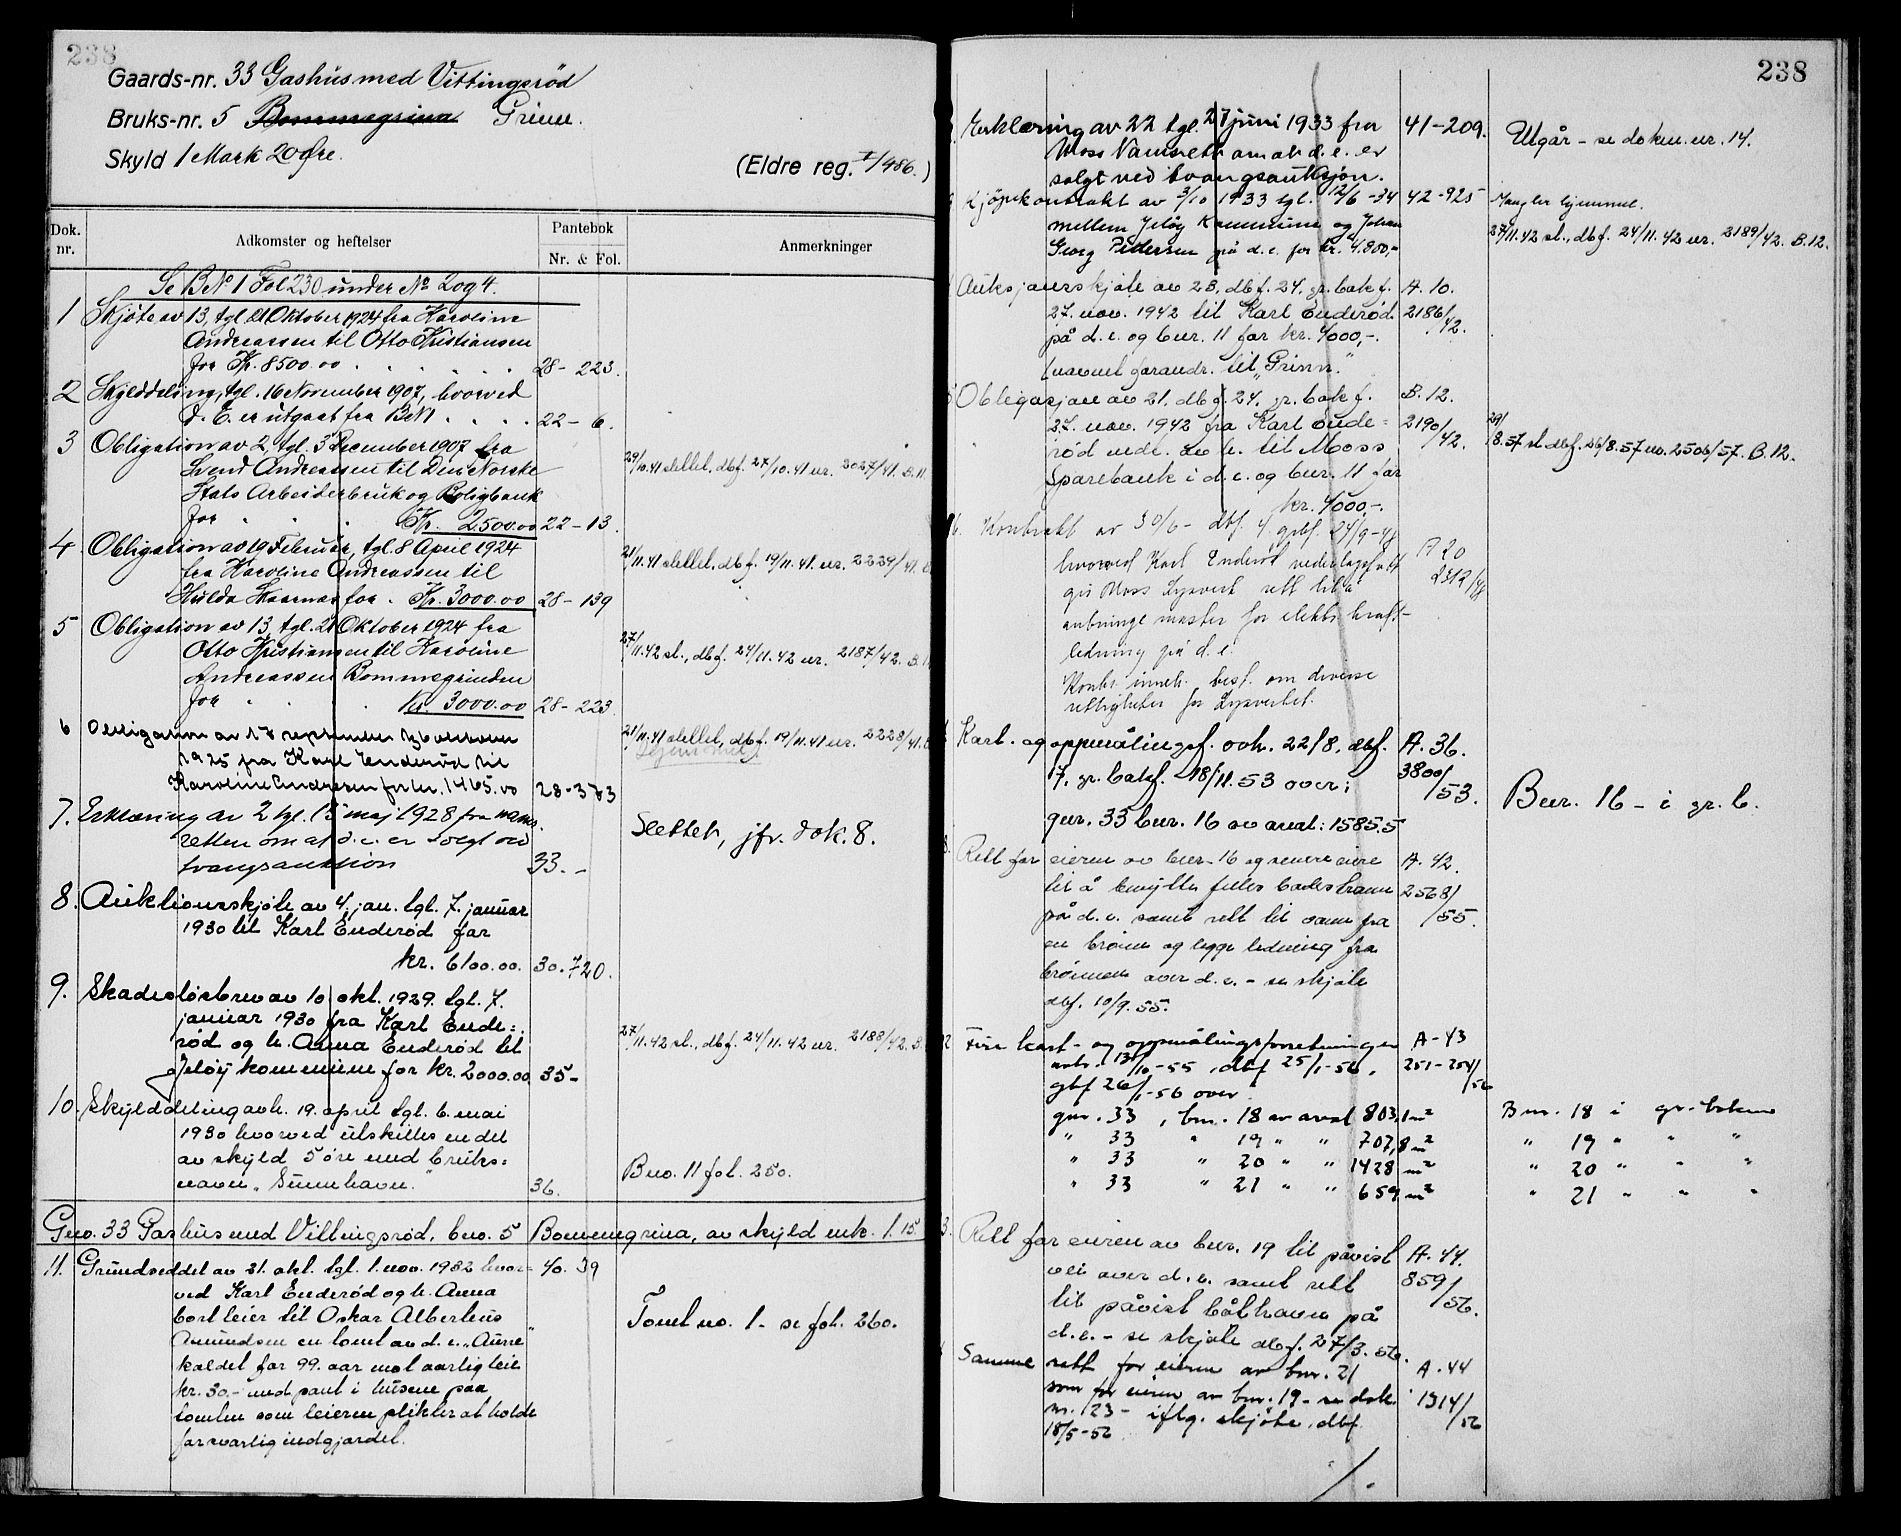 238
Gaards-nr. 33 Gashus med Vittingsröd
Bruks-nr. 5 Bommegrina Grinn.
Skyld 1 Mark 20 Øre.
(Eldre reg. I/486.)
Dok. nr.
Adkomster og heftelser
Pantebok
Nr. & Fol.
Anmerkninger
Se B№ 1 Fol 230 under № 2 og 4.
1 Skjöte av 13, tgl. 21 Oktober 1924 fra Karoline
Andreassen til Otto Kristiansen
for Kr. 8500.00 28-223.
2 Skylddeling, tgl. 16 November 1907, hvorved
d. E. er utgaat fra B№1 22-6.
3 Obligation av 2, tgl. 3 December 1907 fra
Svend Andreassen til Den Norske
Stats Arbeiderbruk og Boligbank
for Kr. 2500.00 22-13.
29/10.41 slettet, dbf. 27/10.41 nr. 2027/41. B.11.
4 Obligation av 19 Februar, tgl. 8 April 1924
fra Karoline Andreassen til
Hulda Haarnas for Kr. 3000.00 28-139
21/11.41 slettet, dbf. 19/11.41 nr. 2229/41.
5 Obligation av 13, tgl. 21 Oktober 1924 fra
Otto Kristiansen til Karoline
Andreassen Bommegrinden
for Kr. 3000.00 28-223
27/11.42 sl., dbf. 24/11.42 nr. 2187/42. B.
6 Obligation av 17 september tgl. oktober
1925 fra Karl Enderöd til
Karoline Andresen for kr. 1465.00 28-373
21/11.41 slettet, dbf. 19/11.41 nr. 2228/41.
7. Erklæring av 2 tgl. 15 maj 1928 fra nams-
retten om at d.e. er solgt ved
tvangsauktion 33.-
Slettet, jfr. dok. 8.
8. Auktionsskjøte av 4. jan. tgl. 7. januar
1930 til Karl Enderød for
kr. 6100.00. 30.720.
9. Skadesløsbrev av 10 okt. 1929. tgl. 7.
januar 1930 fra Karl Ende=
rød og h. Anna Enderød til
Jeløy kommune for kr. 2000.00 35-
27/11.42 sl., dbf. 24/11.42 nr. 2188/42. B.
10. Skylddeling avh. 19. april tgl. 6. mai
1930 hvorved utskilles en del
av skyld 5 øre med bruks=
navn „Sunnhavn." 36.
Bno. 11 fol. 250.
Gno. 33 Gashus med Vittingsrød, bno. 5 Bommegrina, av skyld mk. 1.15
11. Grundseddel av 31. okt. tgl. 1. nov. 1932 hvor= 40. 39
ved Karl Enderød og h. Anna
bortleier til Oskar Albertius
Amundsen en tomt av d.e. „Aune"
kaldet for 99. aar mot aarlig leie
kr. 30.- med pant i husene paa
tomten som leieren plikter at holde
forsvarlig indgjærdet.
Tomt no. 1 - se fol. 260.
238
Erklæring av 22 tgl. 27 juni 1933 fra 41-209.
Moss Namsrett om at d.e. er
solgt ved tvangsauksjon.
Utgår - se dokm. nr. 14.
Kjöpekontrakt av 3/10 1933 tgl. 12/6-34 42-925
mellem Jelöy Kommune og Johan
Georg Pedersen på d.e. for kr. 4.800,-
Mangler hjemmel.
27/11.42 sl., dbf. 24/11.42 nr. 2189/42. B.12.
Auksjonsskjøte av 23, dbf. 24. gr.bok f. A. 10.
27. nov. 1942 til Karl Enderød 2186/42.
på d.e. og bnr. 11 for kr. 4000,-.
(navnet forandr. til „Grinn."
Obligasjon av 21. dbf. 24. gr. bok f. B. 12.
27. nov. 1942 fra Karl Ende= 2190/42.
rød til Moss
Sparebank i d.e. og bnr. 11 for
kr. 4000,-.
29/8.57 sl. dbf. 26/8.57 no. 2506/57. B.12.
16. Kontrakt av 30/6- dbf. 4. gbf. 24/9-
hvorved Karl Enderød vederlagsfritt A 20
gir Moss Lysverk rett til å
anbringe master for elektr. kraft-
ledning på d.e.
Kontr. inneh. best. om diverse
rettigheter for Lysverket.
Kart- og oppmålingsf. avh. 22/8, dbf. A. 36.
17, gr. bokf. 18/11.53 over: 3800/53.
gnr. 33 bnr. 16 av areal: 1585.5
Bnr. 16 - i gr. b.
Rett for eieren av bnr. 16 og senere eiere A. 42.
til å benytte felles badestrann 2568/55.
på d.e. samt rett til vann fra
en brönn og legge ledning fra
brönnen over d.e. - se skjøte
dbf. 10/9.55.
Fire kart- og oppmålingsforretninger A-43
avh. 13/10-55, dbf 25/1-56, 251-254/56
gbf 26/1-56 over
gnr. 33, bnr. 18 av areal 803,1 m² Bnr. 18 i gr.boken
" 33 " 19 " " 707,8 m² " 19 " " "
" 33 " 20 " " 1428 m² " 20 " " "
" 33 " 21 " " 659 m² " 21 " " "
Rett for eieren av bnr. 19 til påvist A. 44.
vei over d.e. samt rett 859/56.
til påvist båthavn på
d.e. - se skjøte dbf. 27/3.56.
Samme rett for eieren av bnr. 21 A. 44
som for eieren av bnr. 19 - se dok. 1314/56
nr. 123 - iflg. skjöte, dbf.
18/5-56